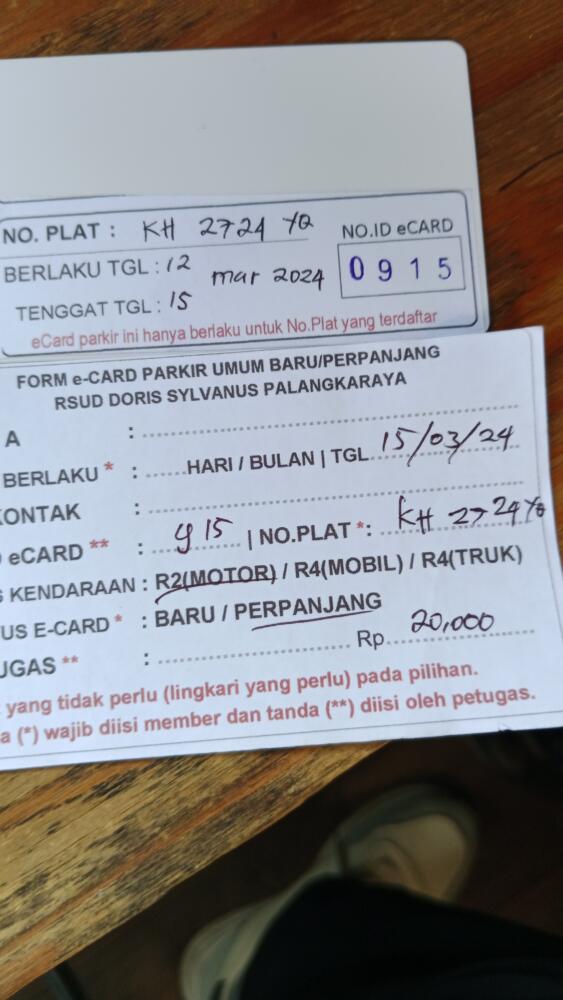 NO. PLAT : KH 2724 YQ
NO.ID eCARD
BERLAKU TGL : 12 mar 2024
0915
TENGGAT TGL : 15
eCard parkir ini hanya berlaku untuk No.Plat yang terdaftar
FORM e-CARD PARKIR UMUM BARU/PERPANJANG
RSUD DORIS SYLVANUS PALANGKARAYA
A :
BERLAKU * : HARI / BULAN | TGL 15/03/24
ONTAK :
eCARD ** : 915 | NO.PLAT *: KH 2724 YQ
S KENDARAAN : R2(MOTOR) / R4(MOBIL) / R4(TRUK)
US E-CARD * : BARU / PERPANJANG
UGAS ** : Rp 20,000
yang tidak perlu (lingkari yang perlu) pada pilihan.
a (*) wajib diisi member dan tanda (**) diisi oleh petugas.